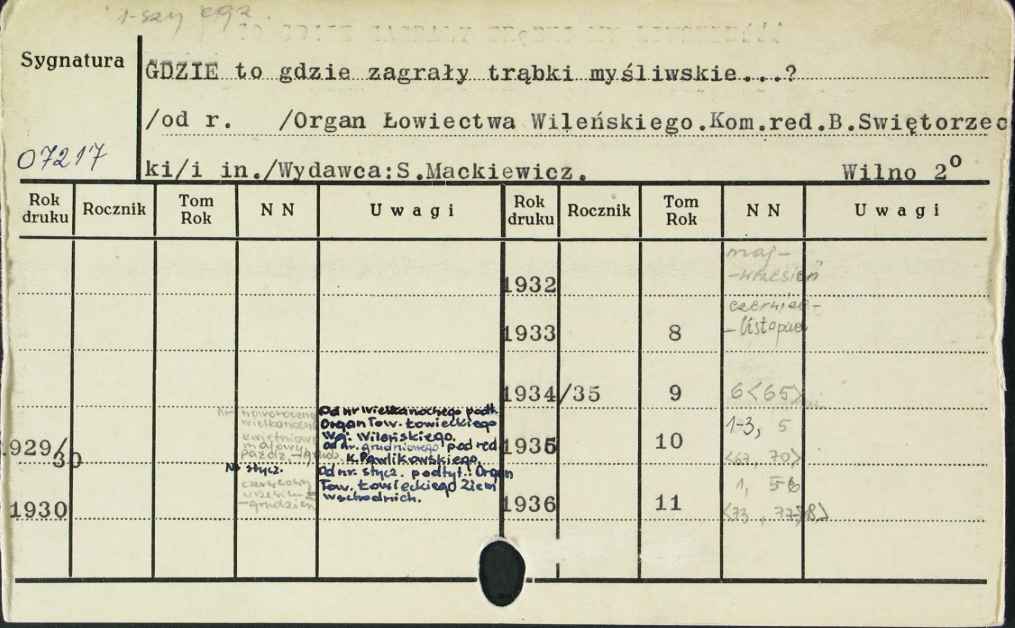 1-szy egz.
Sygnatura
GDZIE to gdzie zagrały trąbki myśliwskie...?
/od r. /Organ Łowiectwa Wileńskiego.Kom.red.B.Swiętorzec
07217
ki/i in./Wydawca:S.Mackiewicz. Wilno 2º
Rok druku Rocznik Tom Rok NN Uwagi Rok druku Rocznik Tom Rok NN Uwagi
maj-
1932 -wrzesień
czerwiec-
1933 8 -listopad
1934/35 9 6<65>
Nr noworoczny Od nr wielkanocnego podt.
wielkanocny Organ Tow. Łowieckiego
kwietniowy Woj. Wileńskiego.
majowy od nr. grudniowego pod red.
1929/30 paźdz.-grud. K. Pawlikowskiego.
1935 10 1-3, 5
<63, 70>
Nr stycz. Od nr. stycz. podtyt.: Organ
czerwcowy Tow. Łowieckiego Ziem
wrzesień- wschodnich.
1930 -grudzień
1936 11 1, 5-6
<73, 77-78>